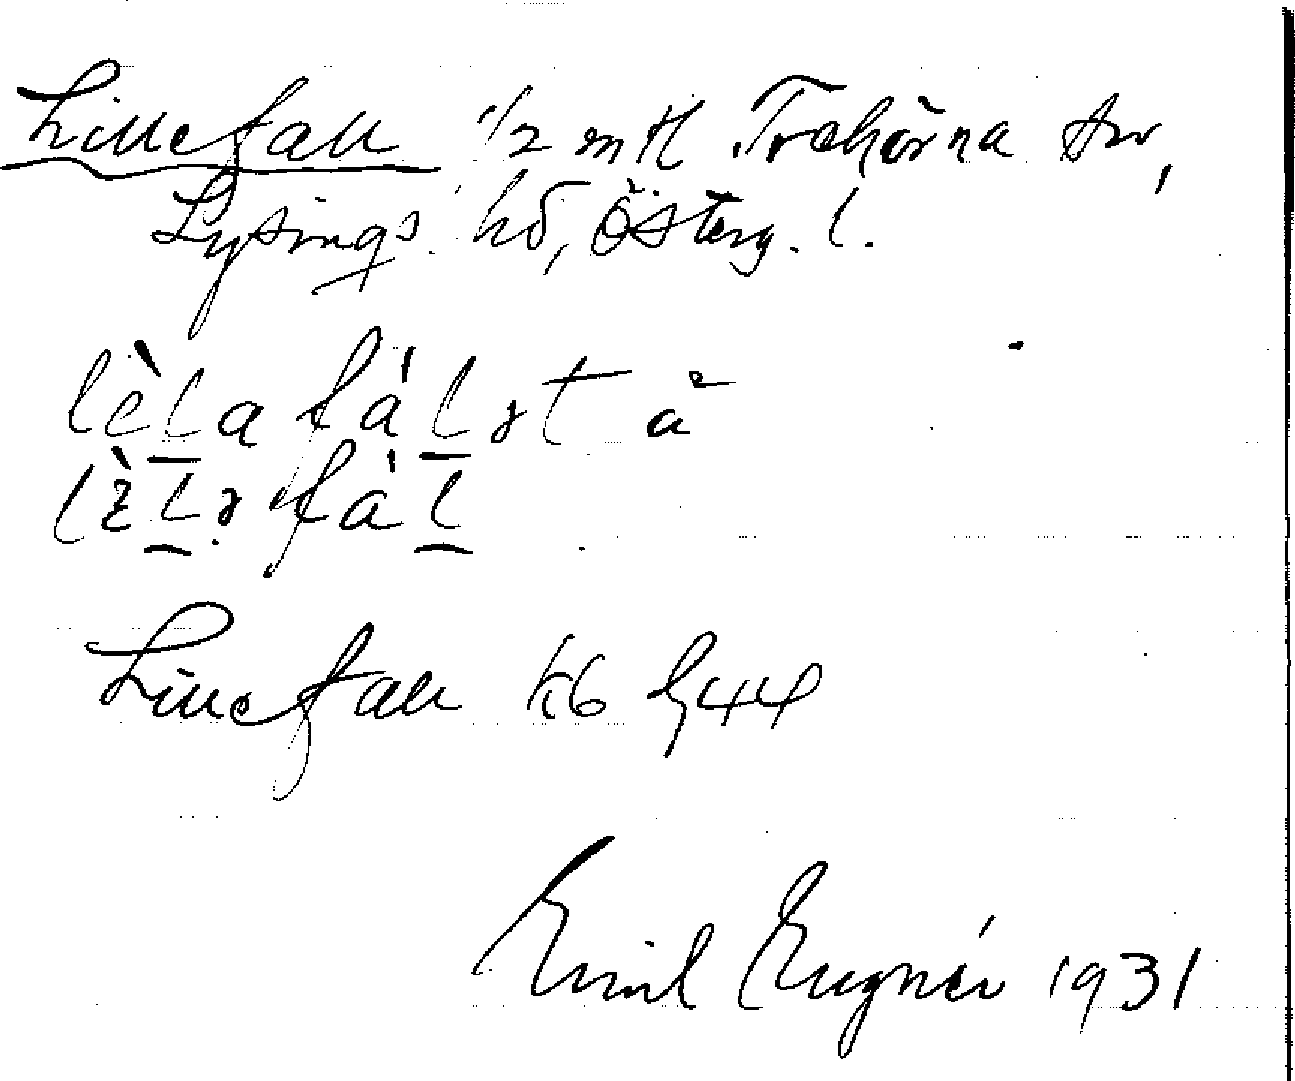 Lillefall 1/2 mtl Trehörna sn,
Lysings hd, Österg. l.
lèla fálət å
lèlə fál
Lillefall kb
Emil 1931